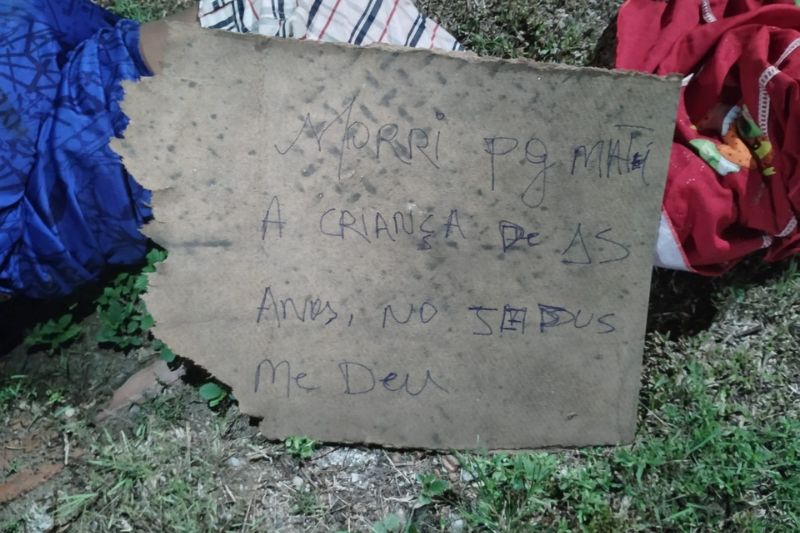 MORRI PQ MATEI
A CRIANÇA DE 15
ANOS, NO
Me Deu